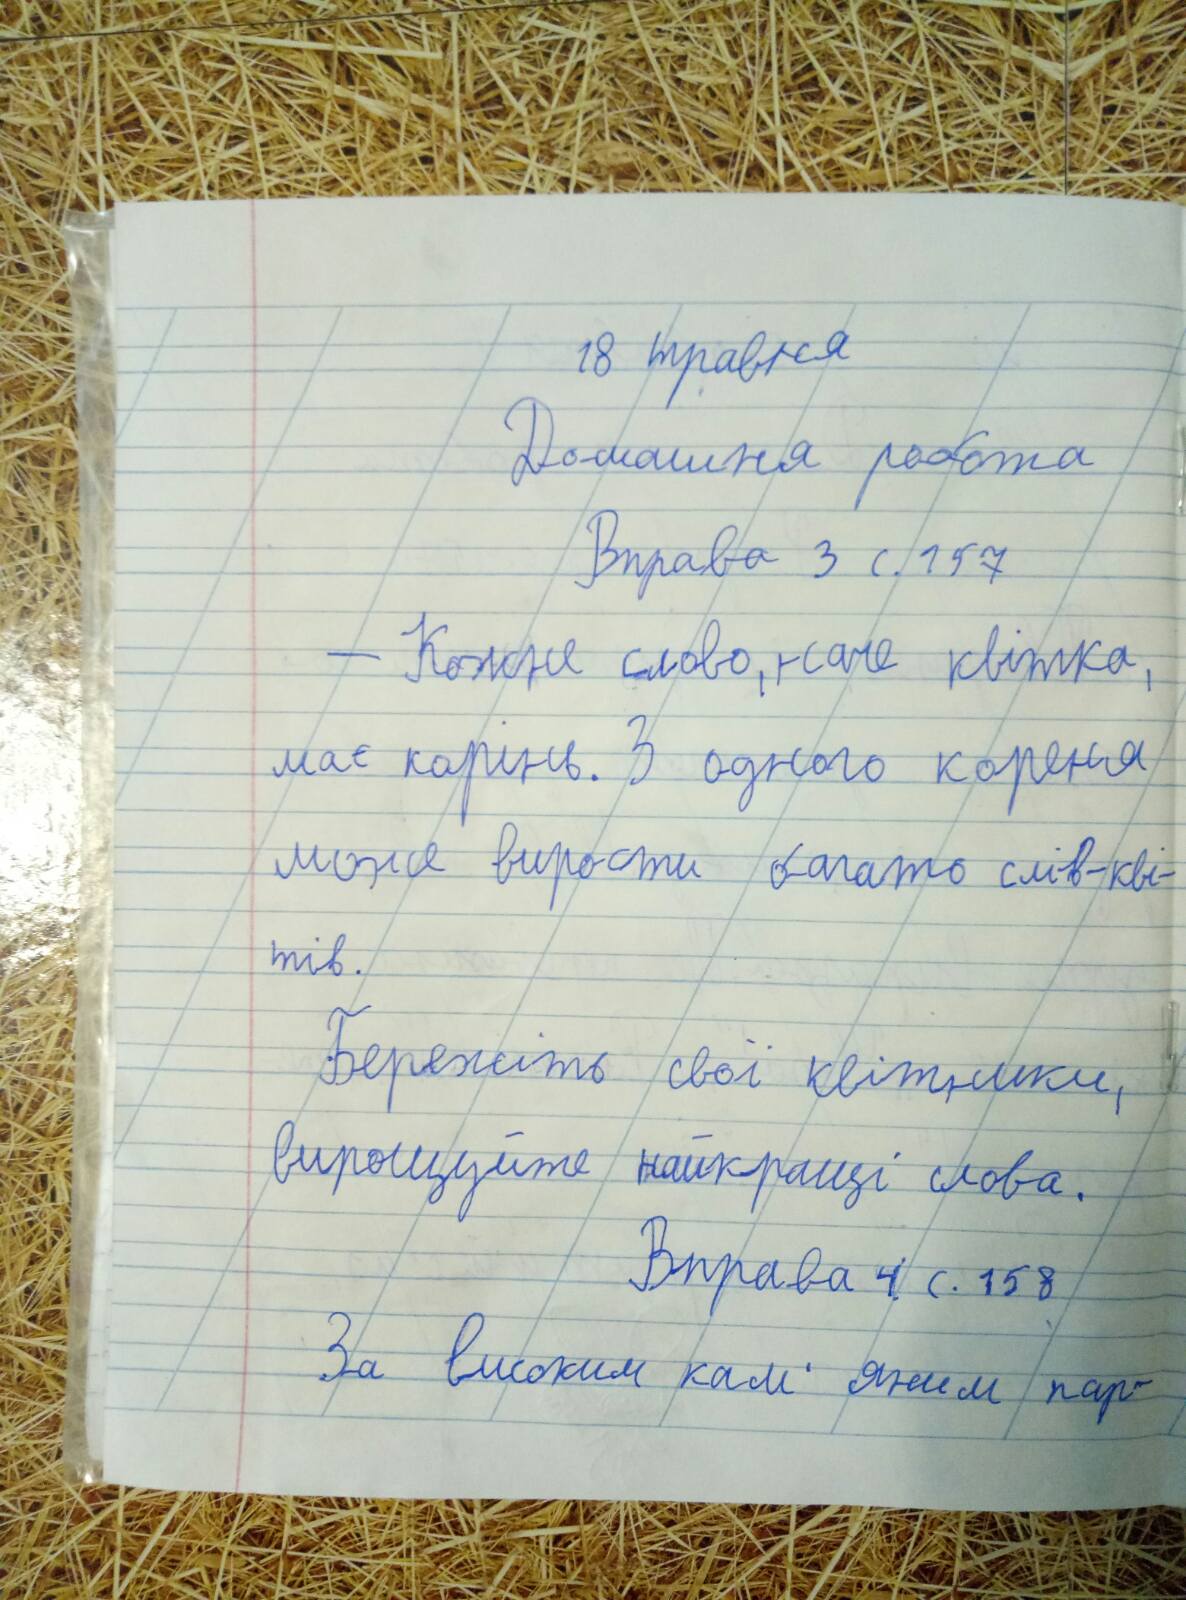 18 травня
Домашня робота
Вправа 3 с. 157
— Кожне слово, наче квітка,
має корінь. З одного кореня
може вирости багато слів-кві-
тів.
Бережіть свої квітники,
вирощуйте найкращі слова.
Вправа 4 с. 158
За високим кам'яним пар-